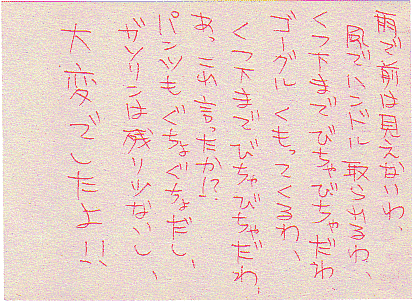 雨で前は見えないわ、
風でハンドル取られるわ、
くつ下までびちゃびちゃだわ、
ゴーグルくもってくるわ、
くつ下までびちゃびちゃだわ、
あっこれ言ったか!?
パンツもぐちょぐちょだし、
ガソリンは残り少ないし、
大変でしたよ!!